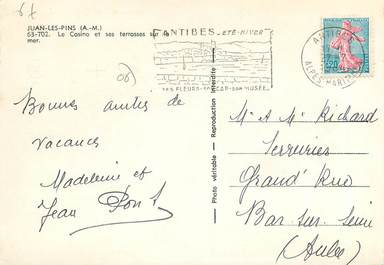 JUAN-LES-PINS (A.-M.)
63-702. Le Casino et ses terrasses sur la
mer.
ANTIBES ÉTÉ-HIVER
SES FLEURS-SON CAP-SON MUSÉE
ANTIBES
ALPES-MARITIMES
06)
Bonnes amitiés de
vacances
Madeleine et
Jean Pont
Photo véritable - Reproduction interdite
M. et Me Richard
Serruries
Grand' Rue
Bar-sur-Seine
(Aube)